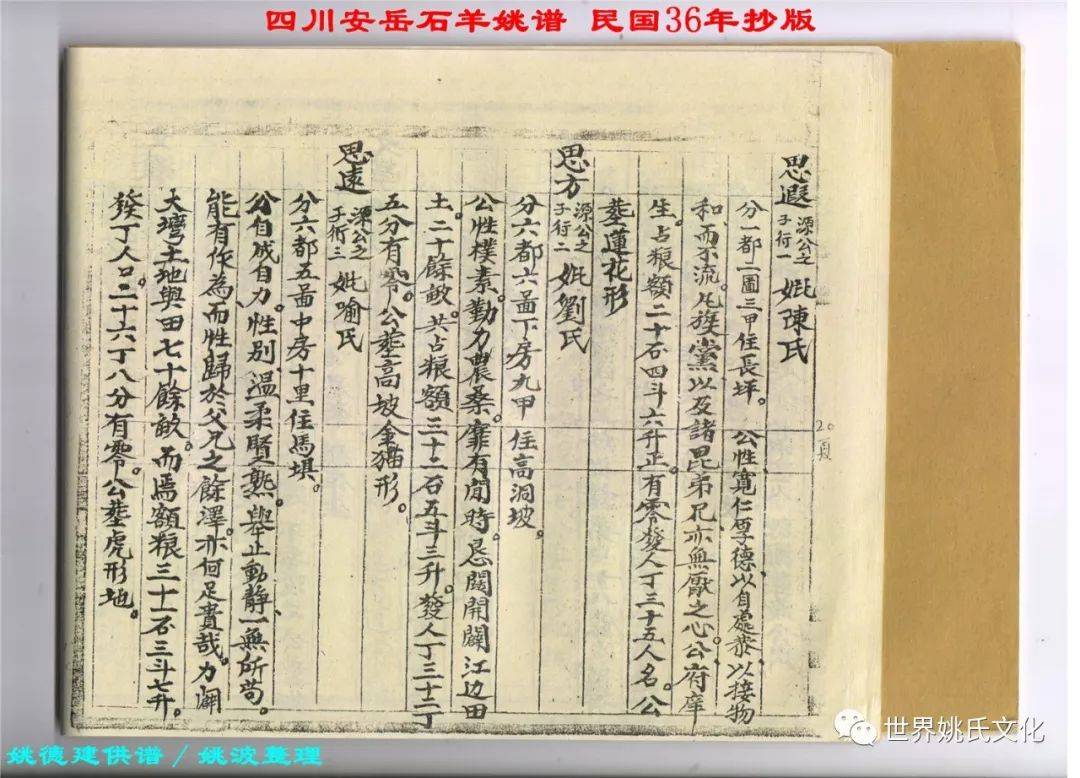 四川安岳石羊姚谱 民国36年抄版
思遐 源公之子行一 妣陳氏
分一都二圖三甲住長坪。 公性寬仁厚德以自處恭以接物
和、而不流。凡族黨以及諸昆弟兄亦無厭之心。公府庠
生。占粮額二十石四斗六升正。有零發人丁三十五人名。公
塟蓮花形
思方 源公之子行二 妣劉氏
分六都六啚下房九甲 住高洞坡。
公性樸素。勤力農桑。靡有閒時。恳闊開闢江边田
土。二十餘畝。共占粮額三十二石五斗三升。發人丁三十二丁
五分有零。公塟高坡金猫形。
思遠 源公之子行三 妣喻氏
分六都五啚中房十里住馬埧。
公自成自力。性别温柔賢熟。舉止動静一無所苟。
能有作為而性歸於父兄之餘澤。亦何足貴哉。力闢
大灣土地與田七十餘畝。而焉額粮三十一石三斗七升。
發丁人口。二十六丁八分有零。公塟虎形地。
20頁
世界姚氏文化
姚德建供谱/姚波整理